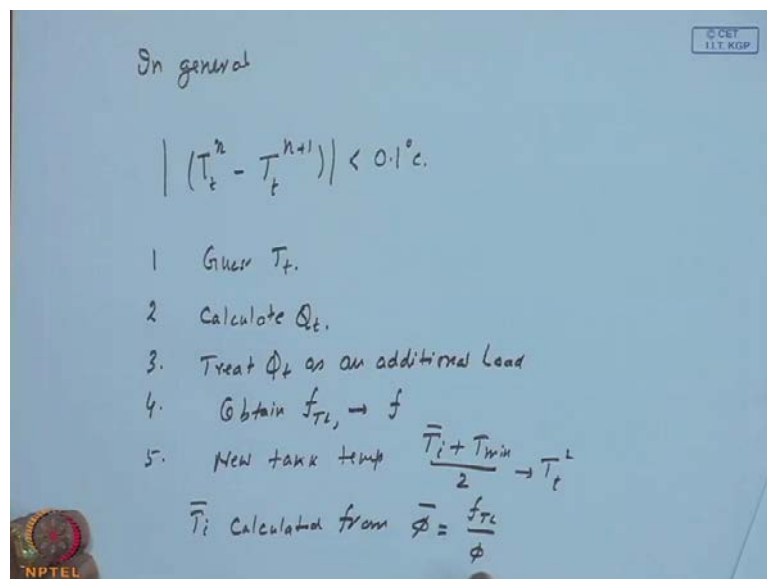 In general
© CET
I.I.T. KGP
| (T_t^n - T_t^{n+1}) | < 0.1°c.
1 Guess T_t.
2 Calculate Q_t.
3. Treat Q_t as an additional Load
4. Obtain f_{TL}, → f
5. New tank temp \frac{\bar{T}_i + T_{min}}{2} → T_t^2
\bar{T}_i Calculated from \bar{\phi} = \frac{f_{TL}}{\phi}
NPTEL